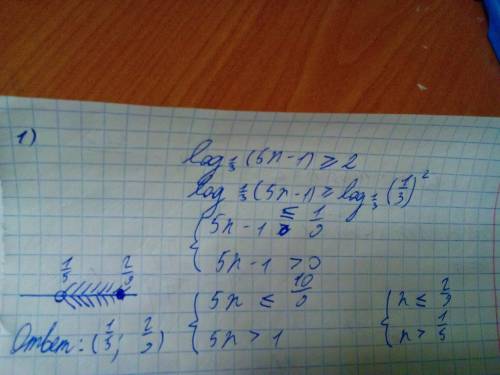 1)
log_{1/3} (5x-1) ≥ 2
log_{1/3} (5x-1) ≥ log_{1/3} (1/3)^2
{ 5x-1 ≤ 1/9
{ 5x-1 > 0
{ 5x ≤ 10/9 { x ≤ 2/9
{ 5x > 1 { x > 1/5
1/5 2/9
Ответ: (1/5; 2/9)